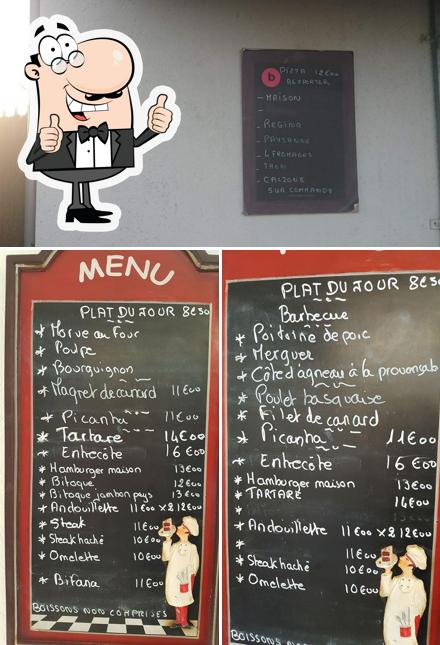 b
PIZZA 12€00
A EMPORTER
- MAISON
-
- REGINA
- PAYSANNE
- 4 FROMAGES
- THON
- CALZONE
SUR COMMANDE
MENU
PLAT DU JOUR 8€50
* Morue au Four
* Poulpe
* Bourguignon
* Magret de canard 11€00
* Picanha 11€00
* Tartare 14€00
* Entrecôte 16€00
* Hamburger maison 13€00
* Bitoque 12€00
* Bitoque jambon pays 13€00
* Andouillette 11€00 x2 12€00
* Steak 11€00
* Steak haché 10€00
* Omelette 10€00
* Bifana 11€00
BOISSONS NON COMPRISES
PLAT DU JOUR 8€50
Barbecue
* Poitrine de porc
* Merguez
* Côte d'agneau à la provençale
* Poulet basquaise
* Filet de canard
* Picanha 11€00
* Entrecôte 16€00
* Hamburger maison 13€00
* TARTARE 14€00
*
* Andouillette 11€00 x2 12€00
* 11€00
* Steak haché 10€00
* Omelette 10€00
BOISSONS NON